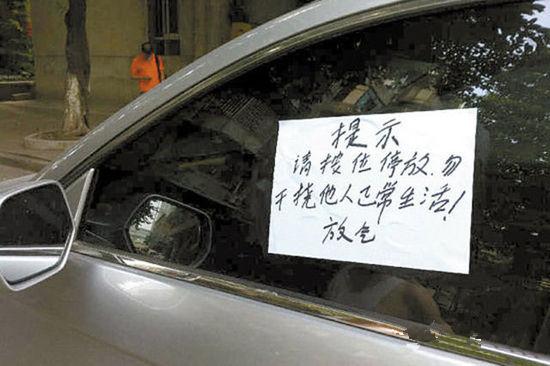 提示
请按位停放.勿
干扰他人正常生活!
放气